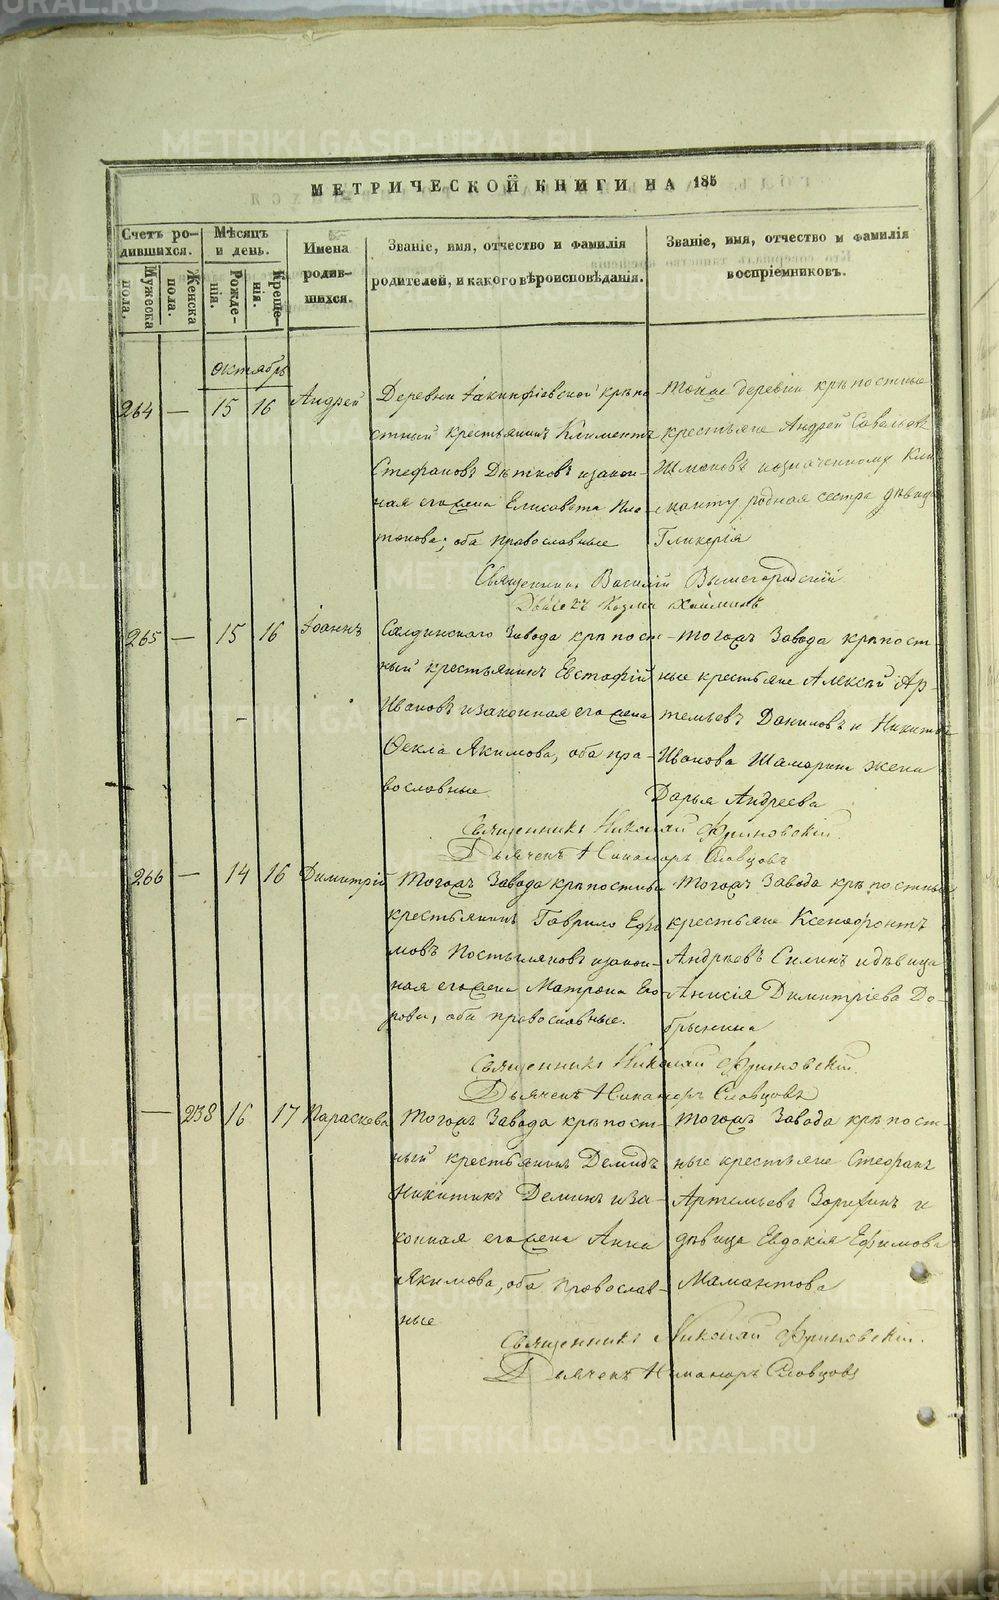 МЕТРИЧЕСКОЙ КНИГИ НА 185
Счетъ ро-
дившихся.
Мѣсяцъ
и день.
Имена
родив-
шихся.
Званіе, имя, отчество и фамилія
родителей, и какого вѣроисповѣданія.
Званіе, имя, отчество и фамилія
воспріемниковъ.
Мужеска
пола.
Женска
пола.
Рожде-
нія.
Креще-
нія.
октябрь
264 — 15 16 Андрей
Деревни Іакинфіевской крѣпо
стный крестьянинъ Климентъ
Стефановъ Дѣтковъ изакон-
ная его жена Елисавета Пла
тонова; оба православные
Тойже деревни крѣпостные
крестьяне Андрей Савельевъ
и означенному Кли
менту родная сестра дѣвица
Гликерія
Священникъ Василій Вышегородскій
Дьячекъ Козма
265 — 15 16 Іоаннъ
Салдинскаго Завода крѣпост
ный крестьянинъ Евстафій
Ивановъ изаконная его жена
Ѳекла Якимова, оба пра-
вославные
тогожъ Завода крѣпост
ные крестьяне Алексѣй Ар-
темьевъ Даниловъ и Никиты
Иванова Шамарина жена
Дарья Андреева
Священникъ Николай Флиновскій.
Дьячекъ Никаноръ Словцовъ
266 — 14 16 Димитрій
Тогожъ Завода крѣпостный
крестьянинъ Гаврило Ефи
мовъ Постыляковъ изакон-
ная его жена Матрона Его
рова, оба православные.
Тогожъ Завода крѣпостные
крестьяне Ксенофонтъ
Андреевъ Силинъ и дѣвица
Анисія Димитріева До-
брынина
Священникъ Николай Флиновскій.
Дьячекъ Никаноръ Словцовъ
— 238 16 17 Параскева
Тогожъ Завода крѣпост-
ный крестьянинъ Демидъ
Никитинъ Деминъ иза-
конная его жена Анна
Якимова, оба православ-
ные
тогожъ Завода крѣпост-
ные крестьяне Стефанъ
Артемьевъ Зорихинъ и
дѣвица Евдокія Ефимова
Мамантова
Священникъ Николай Флиновскій.
Дьячекъ Никаноръ Словцовъ
METRIKI.GASO-URAL.RU